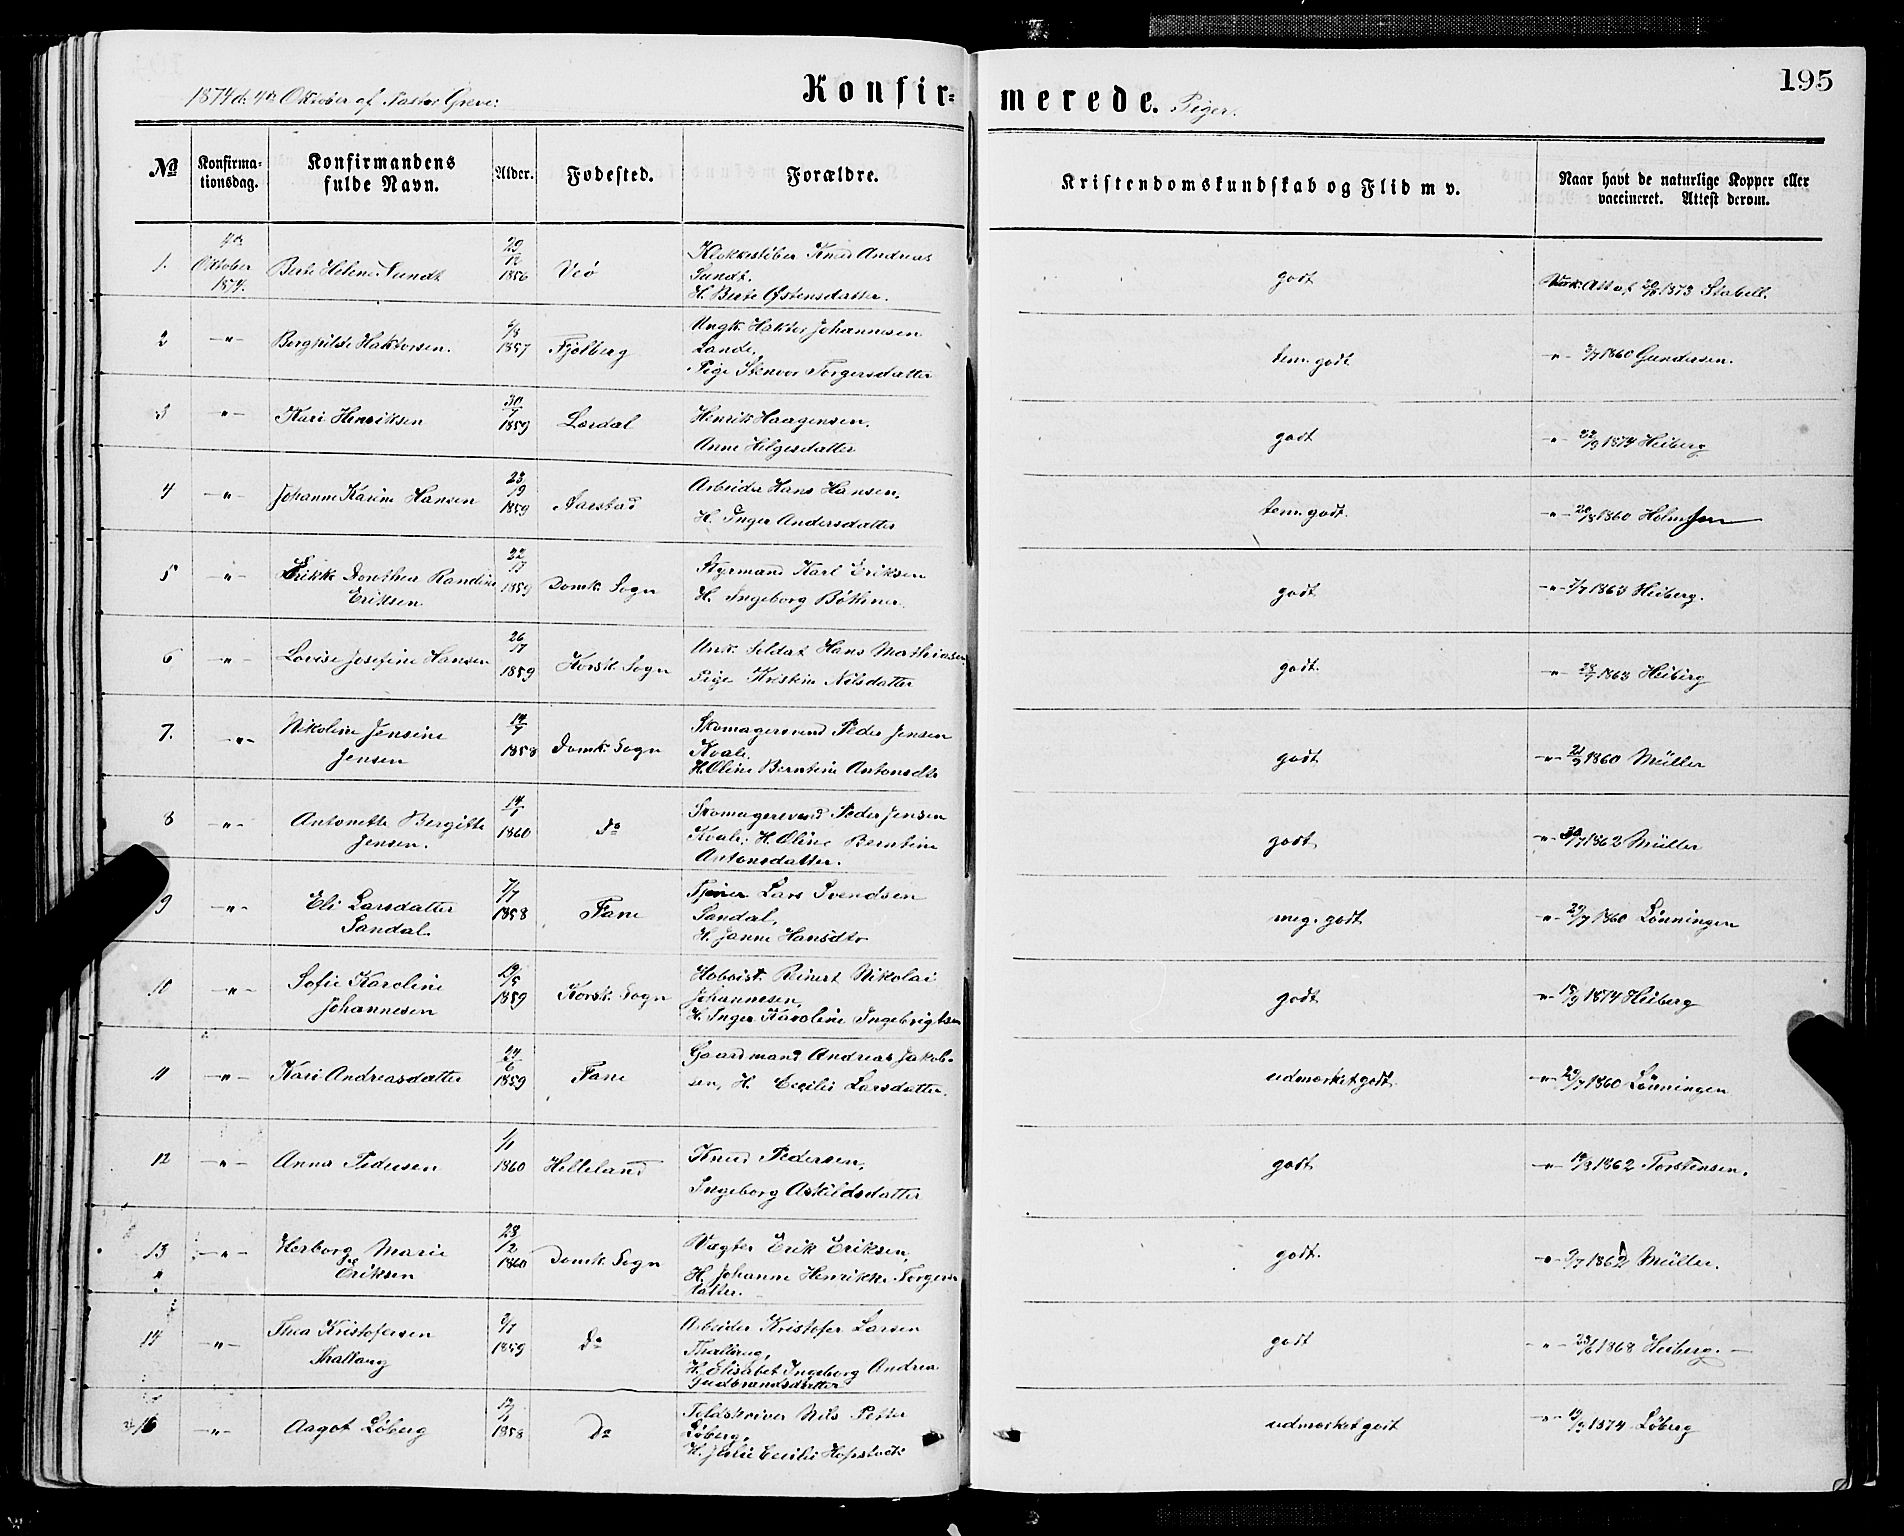 195
1874 d. 4de Oktober af Pastor Greve:
Konfirmerede. Piger.
No
Konfirmationsdag.
Konfirmandens fulde Navn.
Alder.
Fødested.
Forældre.
Kristendomskundskab og Flid m v.
Naar havt de naturlige Kopper eller vaccineret. Attest derom.
1. 4de Oktober 1874. Berte Helene Sundt 1856 Veø
Klokkestøber Knud Andreas
Sundt,
H. Berte Østensdatter.
godt
1873 Stabell.
2 -"- Berghilde Haktorsen. 1857 Fjelberg
Ungk. Haktor Johannesen
Lande,
Pige Stenvor Torgersdatter
tem. godt
-"- 1860 Gundersen.
3 -"- Kari Henriksen 30/7 1859 Lærdal
Henrik Haagensen,
Anne Helgesdatter
godt
-"- 22/9 1874 Heiberg
4 -"- Johanne Karine Hansen 1859 Aarstad
Arbeider Hans Hansen,
H. Inger Andersdatter
tem. godt.
-"- 20/8 1860 Holmsen
5 -"- Rikke Dorothea Randine
Eriksen 1859 Domk. Sogn
Styrmand Karl Eriksen
H. Ingeborg Bøthner.
godt
-"- 7/7 1863 Heiberg.
6 -"- Lovise Josefine Hansen 26/7 1859 Korsk. Sogn
Unk. Soldat Hans Mathiasen
Pige Kristine Nilsdatter
godt.
-"- 1863 Heiberg
7. -"- Nikoline Jensine
Jensen 1858 Domk. Sogn
Skomagersvend Peder Jensen
Kvale,
H. Oline Berntine Antonsdtr
godt
-"- 1860 Müller
8 -"- Antonette Bergitte
Jensen. 1860 do
Skomagersvend Peder Jensen
Kvale, H. Oline Berntine
Antonsdatter.
godt
-"- 1862 Müller
9 -"- Eli Larsdatter
Sandal. 7/7 1858 Fane
Tjener Lars Svendsen
Sandal,
H. Janne Hansdtr
meg. godt
-"- 29/7 1860 Lønningen
10 -"- Sofie Karoline
Johannesen 19/5 1859 Korsk. Sogn
Hoboist Reinert Nikolai
Johannesen,
H. Inger Karoline Ingebrigtsen
godt
-"- 18/9 1874 Heiberg
11 -"- Kari Andreasdatter 24/6 1859 Fane
Gaardmand Andreas Jakob-
sen, H. Cecilie Larsdatter.
udmærket godt.
-"- 29/7 1860 Lønningen
12 -"- Anna Pedersen 1/1 1860 Helleland
Knud Pedersen,
Ingeborg Askildsdatter
godt
-"- 1862 Torstensen.
13 -"- Herborg Marie
Eriksen 28/2 1860 Domk. Sogn
Vægter Erik Eriksen,
H. Johanne Henrikke Torgers-
datter.
godt.
-"- 9/7 1862 Müller.
14 -"- Thea Kristofersen
Thallaug 1859 do
Arbeider Kristofer Larsen
Thallaug,
H. Elisabet Ingeborg Andrea
Gudbrandsdatter
godt
-"- 23/6 1868 Heiberg.
16 -"- Aagot Løberg 1858 do
Toldskriver Nils Petter
Løberg,
H. Julie Cecilie Hofstadt
udmærket godt
-"- 1874 Løberg